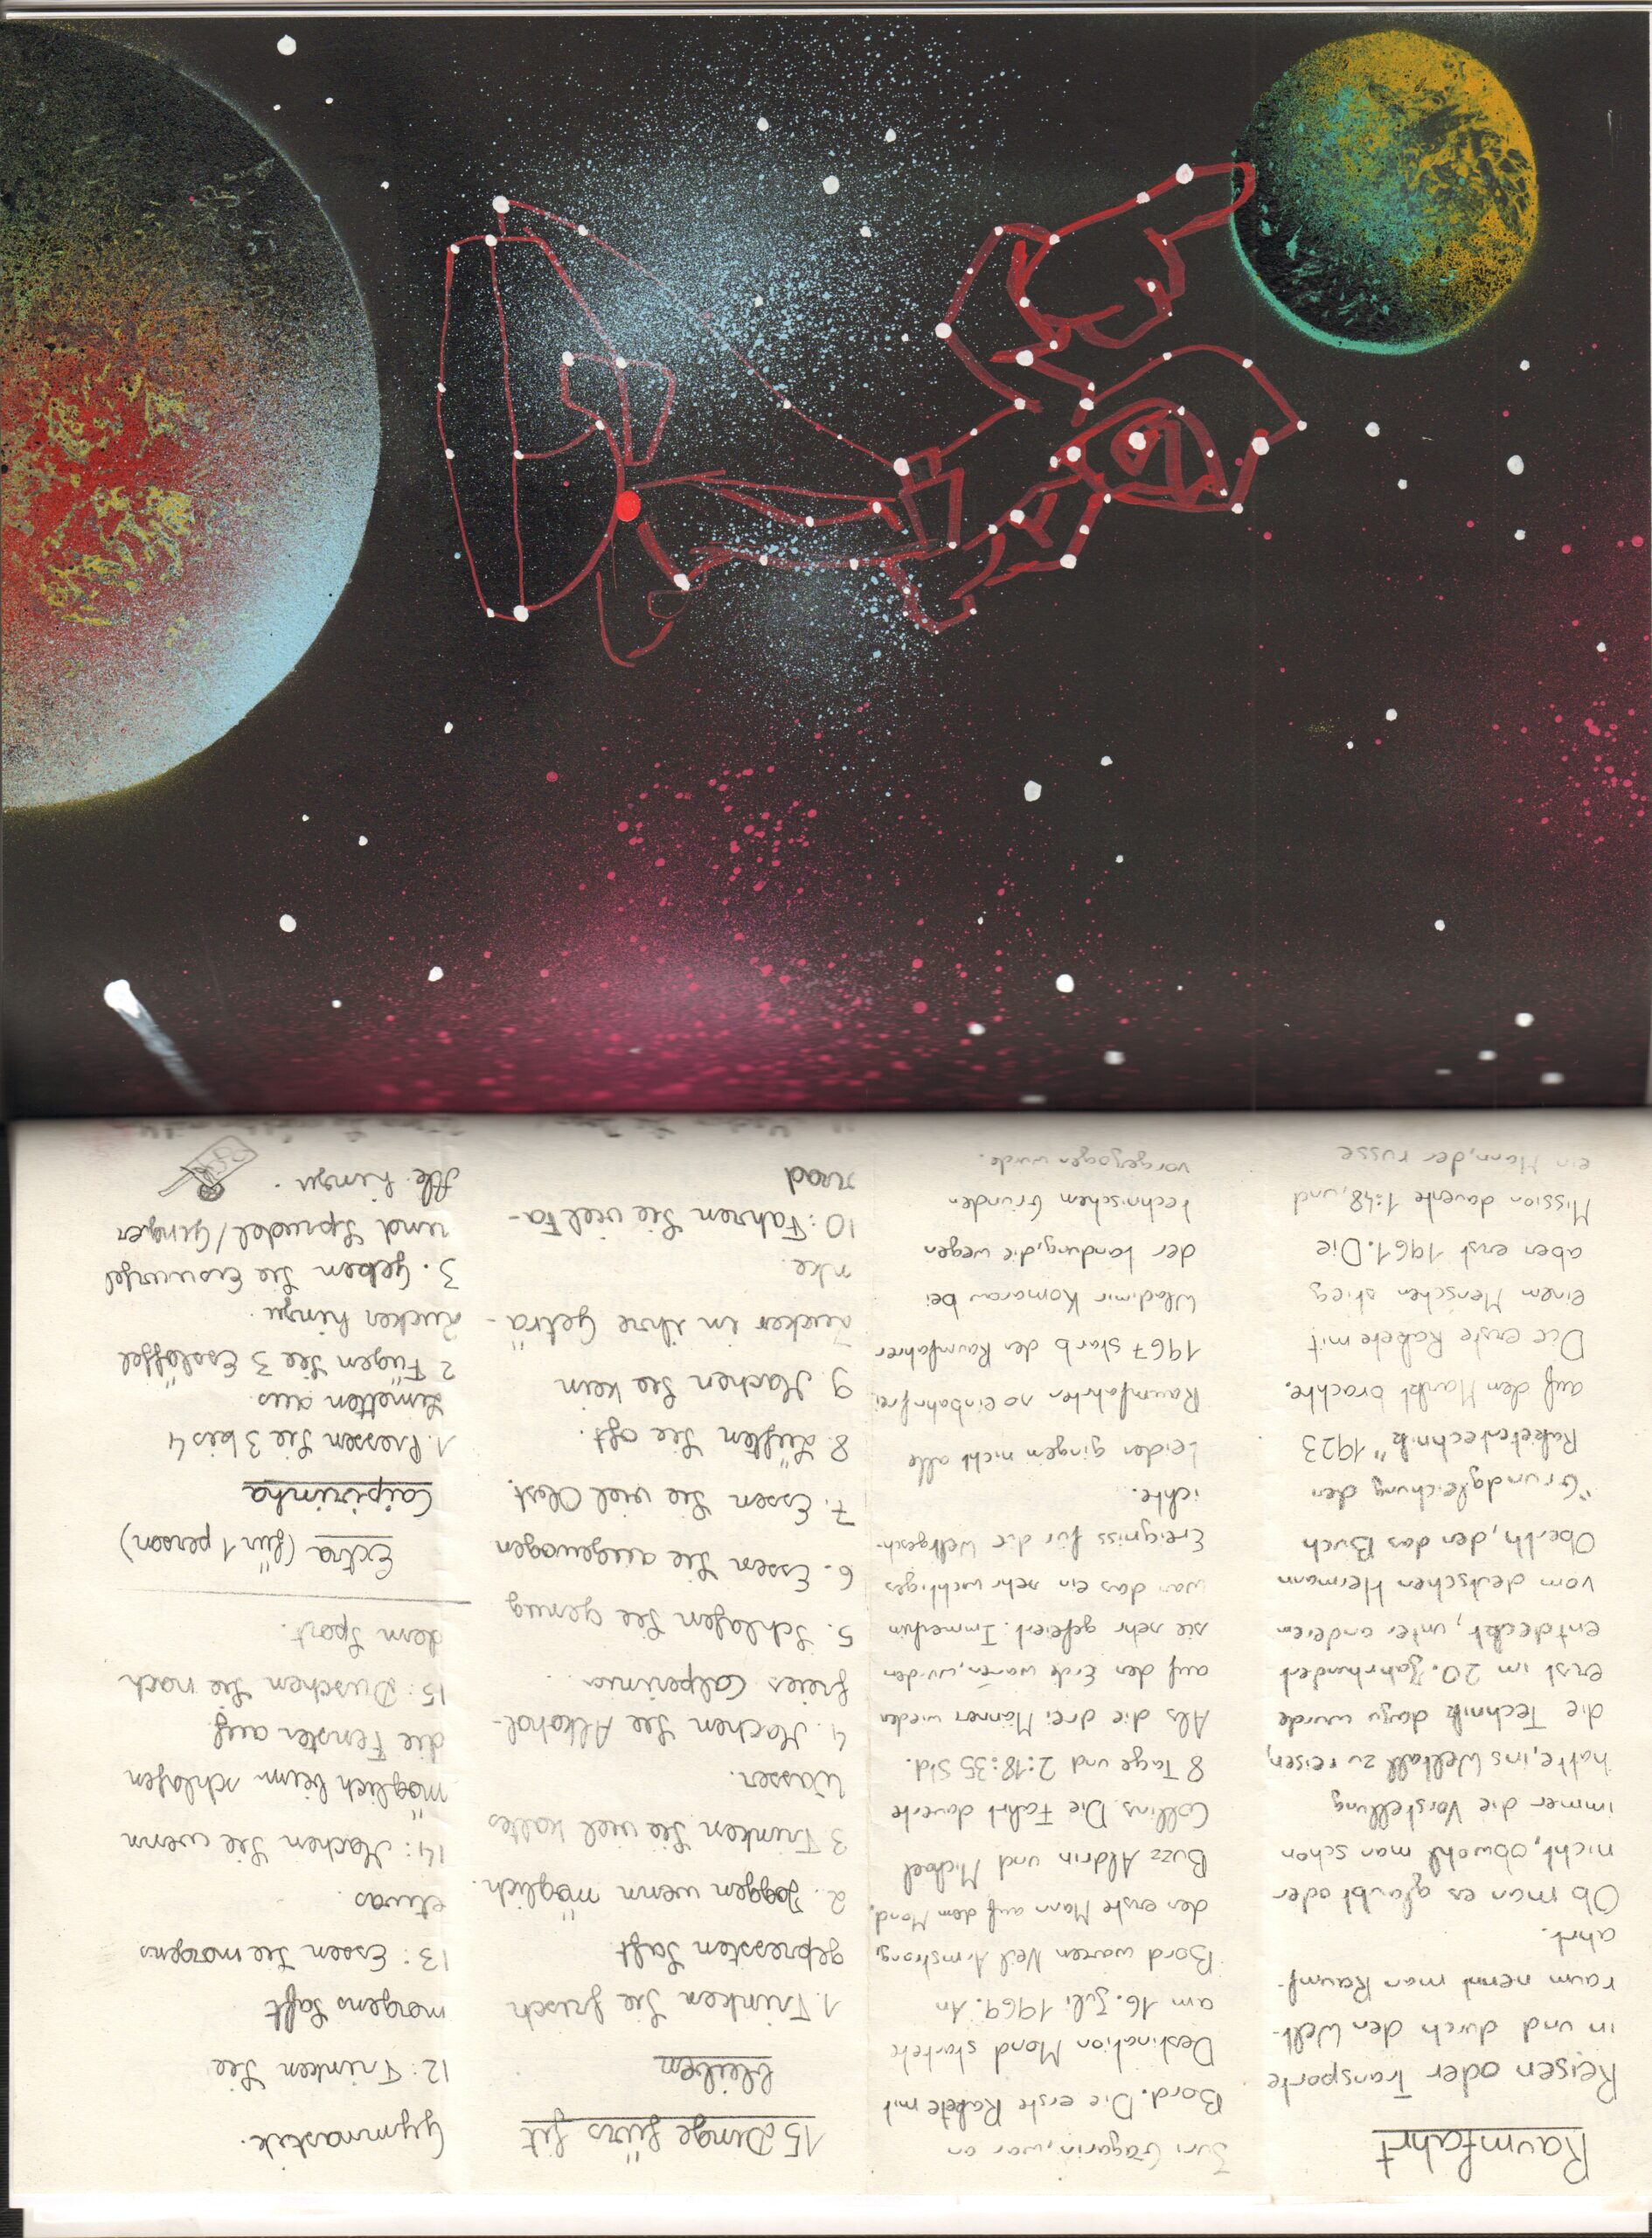 Raumfahrt
Reisen oder Transporte
in und durch den Welt-
raum nennt man Raumf-
ahrt.
Ob man es glaubt oder
nicht, obwohl man schon
immer die Vorstellung
hatte, ins Weltall zu reisen,
die Technik dazu wurde
erst im 20. Jahrhundert
entdeckt, unter anderem
vom deutschen Hermann
Oberth, der das Buch
"Grundgleichung der
Raketentechnik" 1923
auf den Markt brachte.
Die erste Rakete mit
einem Menschen stieg
aber erst 1961. Die
Mission dauerte 1:48, und
ein Mann, der russe
Juri Gagarin, war an
Bord. Die erste Rakete mit
Destination Mond startete
am 16. Juli 1969. An
Bord waren Neil Armstrong,
der erste Mann auf dem Mond,
Buzz Aldrin und Michael
Collins. Die Fahrt dauerte
8 Tage und 2:18:35 Std.
Als die drei Männer wieder
auf der Erde waren, wurden
sie sehr gefeiert. Immerhin
war das ein sehr wichtiges
Ereigniss für die Weltgesch-
ichte.
Leider gingen nicht alle
Raumfahrten so einbahnfrei
1967 starb der Raumfahrer
Wladimir Komarow bei
der Landung, die wegen
technischen Gründen
vorgezogen wurde.
15 Dinge fürs fit
bleiben
1. Trinken Sie frisch
gepressten Saft
2. Joggen wenn möglich.
3 Trinken Sie viel kaltes
Wasser.
4. Machen Sie Alkohol-
freies Caiperinia
5. Schlafen Sie genug
6. Essen Sie ausgewogen
7. Essen Sie viel Obst.
8. Lüften Sie oft.
9. Machen Sie kein
zucker in ihre Geträ-
nke.
10: Fahren Sie viel Fa-
rrad
Gymnastik.
12: Trinken Sie
morgens Saft
13: Essen Sie morgens
etwas.
14: Machen Sie wenn
möglich beim schlafen
die Fenster auf
15: Duschen Sie nach
dem Sport.
Extra (für 1 person)
Caipirinha
1. Pressen Sie 3 bis 4
Limetten aus.
2 Fügen Sie 3 Esslöffel
Zucker hinzu.
3. Geben Sie Eiswürfel
und Sprudel/Ginger
Ale hinzu.